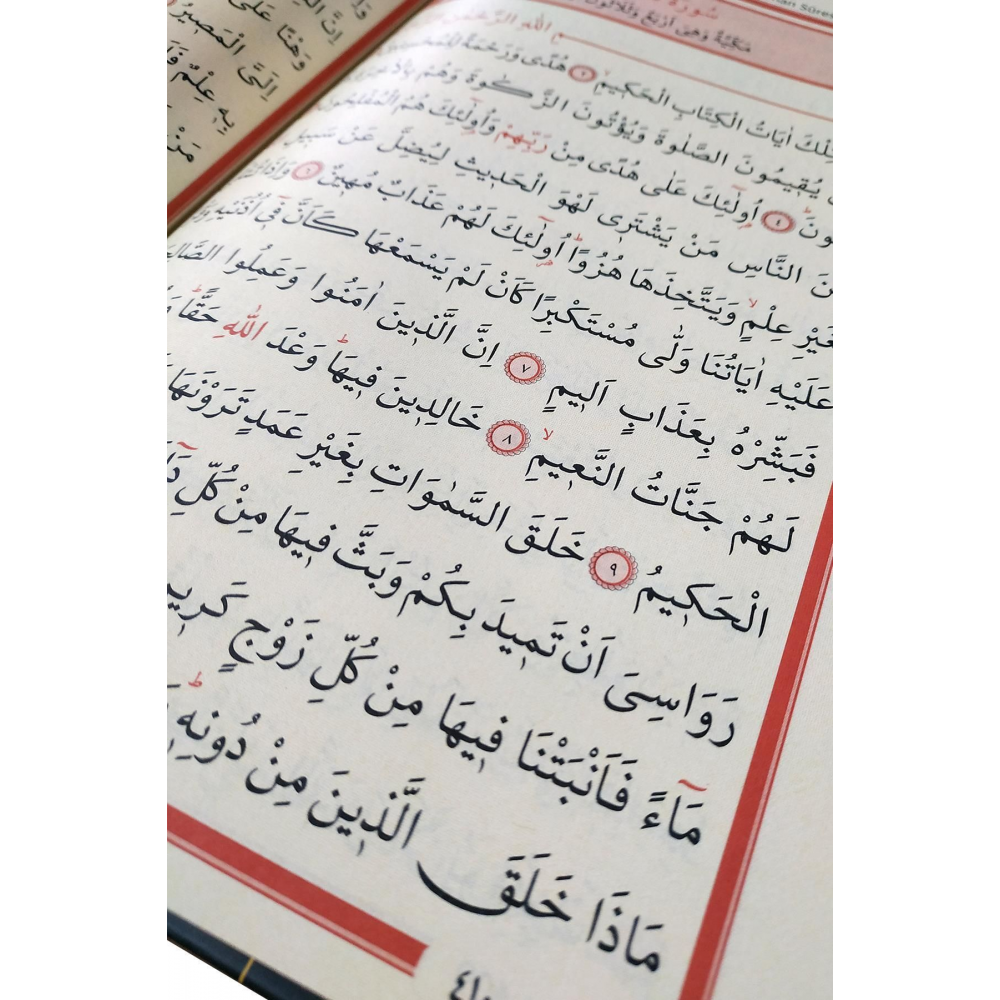 سُورَةُ
مَكِّيَّةٌ وَهِيَ اَرْبَعٌ وَثَلٰثُونَ
اللّٰهِ الرَّحْمٰنِ
اٰيَاتُ الْكِتَابِ الْحَك۪يمِۙ ﴿٢﴾ هُدًى وَرَحْمَةً
يُق۪يمُونَ الصَّلٰوةَ وَيُؤْتُونَ الزَّكٰوةَ وَهُمْ
اُو۬لٰٓئِكَ عَلٰى هُدًى مِنْ رَبِّهِمْ وَاُو۬لٰٓئِكَ هُمُ الْمُفْلِحُونَ
النَّاسِ مَنْ يَشْتَر۪ي لَهْوَ الْحَد۪يثِ لِيُضِلَّ عَنْ سَب۪يلِ
عِلْمٍۙ وَيَتَّخِذَهَا هُزُوًاۜ اُو۬لٰٓئِكَ لَهُمْ عَذَابٌ مُه۪ينٌ ﴿٦﴾
عَلَيْهِ اٰيَاتُنَا وَلّٰى مُسْتَكْبِرًا كَاَنْ لَمْ يَسْمَعْهَا كَاَنَّ ف۪ٓي اُذُنَيْهِ
فَبَشِّرْهُ بِعَذَابٍ اَل۪يمٍ ﴿٧﴾ اِنَّ الَّذ۪ينَ اٰمَنُوا وَعَمِلُوا
لَهُمْ جَنَّاتُ النَّع۪يمِۙ ﴿٨﴾ خَالِد۪ينَ ف۪يهَاۜ وَعْدَ اللّٰهِ حَقًّاۜ
الْحَك۪يمُ ﴿٩﴾ خَلَقَ السَّمٰوَاتِ بِغَيْرِ عَمَدٍ تَرَوْنَهَا
رَوَاسِيَ اَنْ تَم۪يدَ بِكُمْ وَبَثَّ ف۪يهَا مِنْ كُلِّ
مَٓاءً فَاَنْبَتْنَا ف۪يهَا مِنْ كُلِّ زَوْجٍ
مَاذَا خَلَقَ الَّذ۪ينَ مِنْ دُونِه۪ۜ